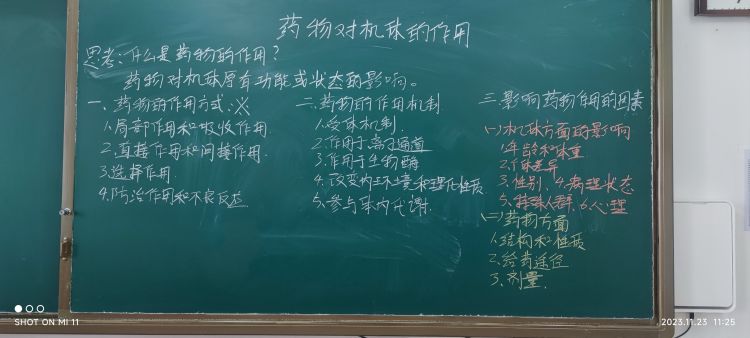 药物对机体的作用
思考:什么是药物的作用?
药物对机体原有功能或状态的影响。
一、药物的作用方式:※
1.局部作用和吸收作用.
2.直接作用和间接作用.
3.选择作用
4.防治作用和不良反应
二、药物的作用机制
1.受体机制.
2.作用于离子通道
3.作用于生物酶
4.改变内环境和理化性质
5.参与体内代谢.
三.影响药物作用的因素
(一)机体方面的影响
1.年龄和体重
2.个体差异
3.性别、4.病理状态
5.特殊人群、6.心理
(二)药物方面
1.结构和性质
2.给药途径
3.剂量.
SHOT ON MI 11
2023.11.23 11:25